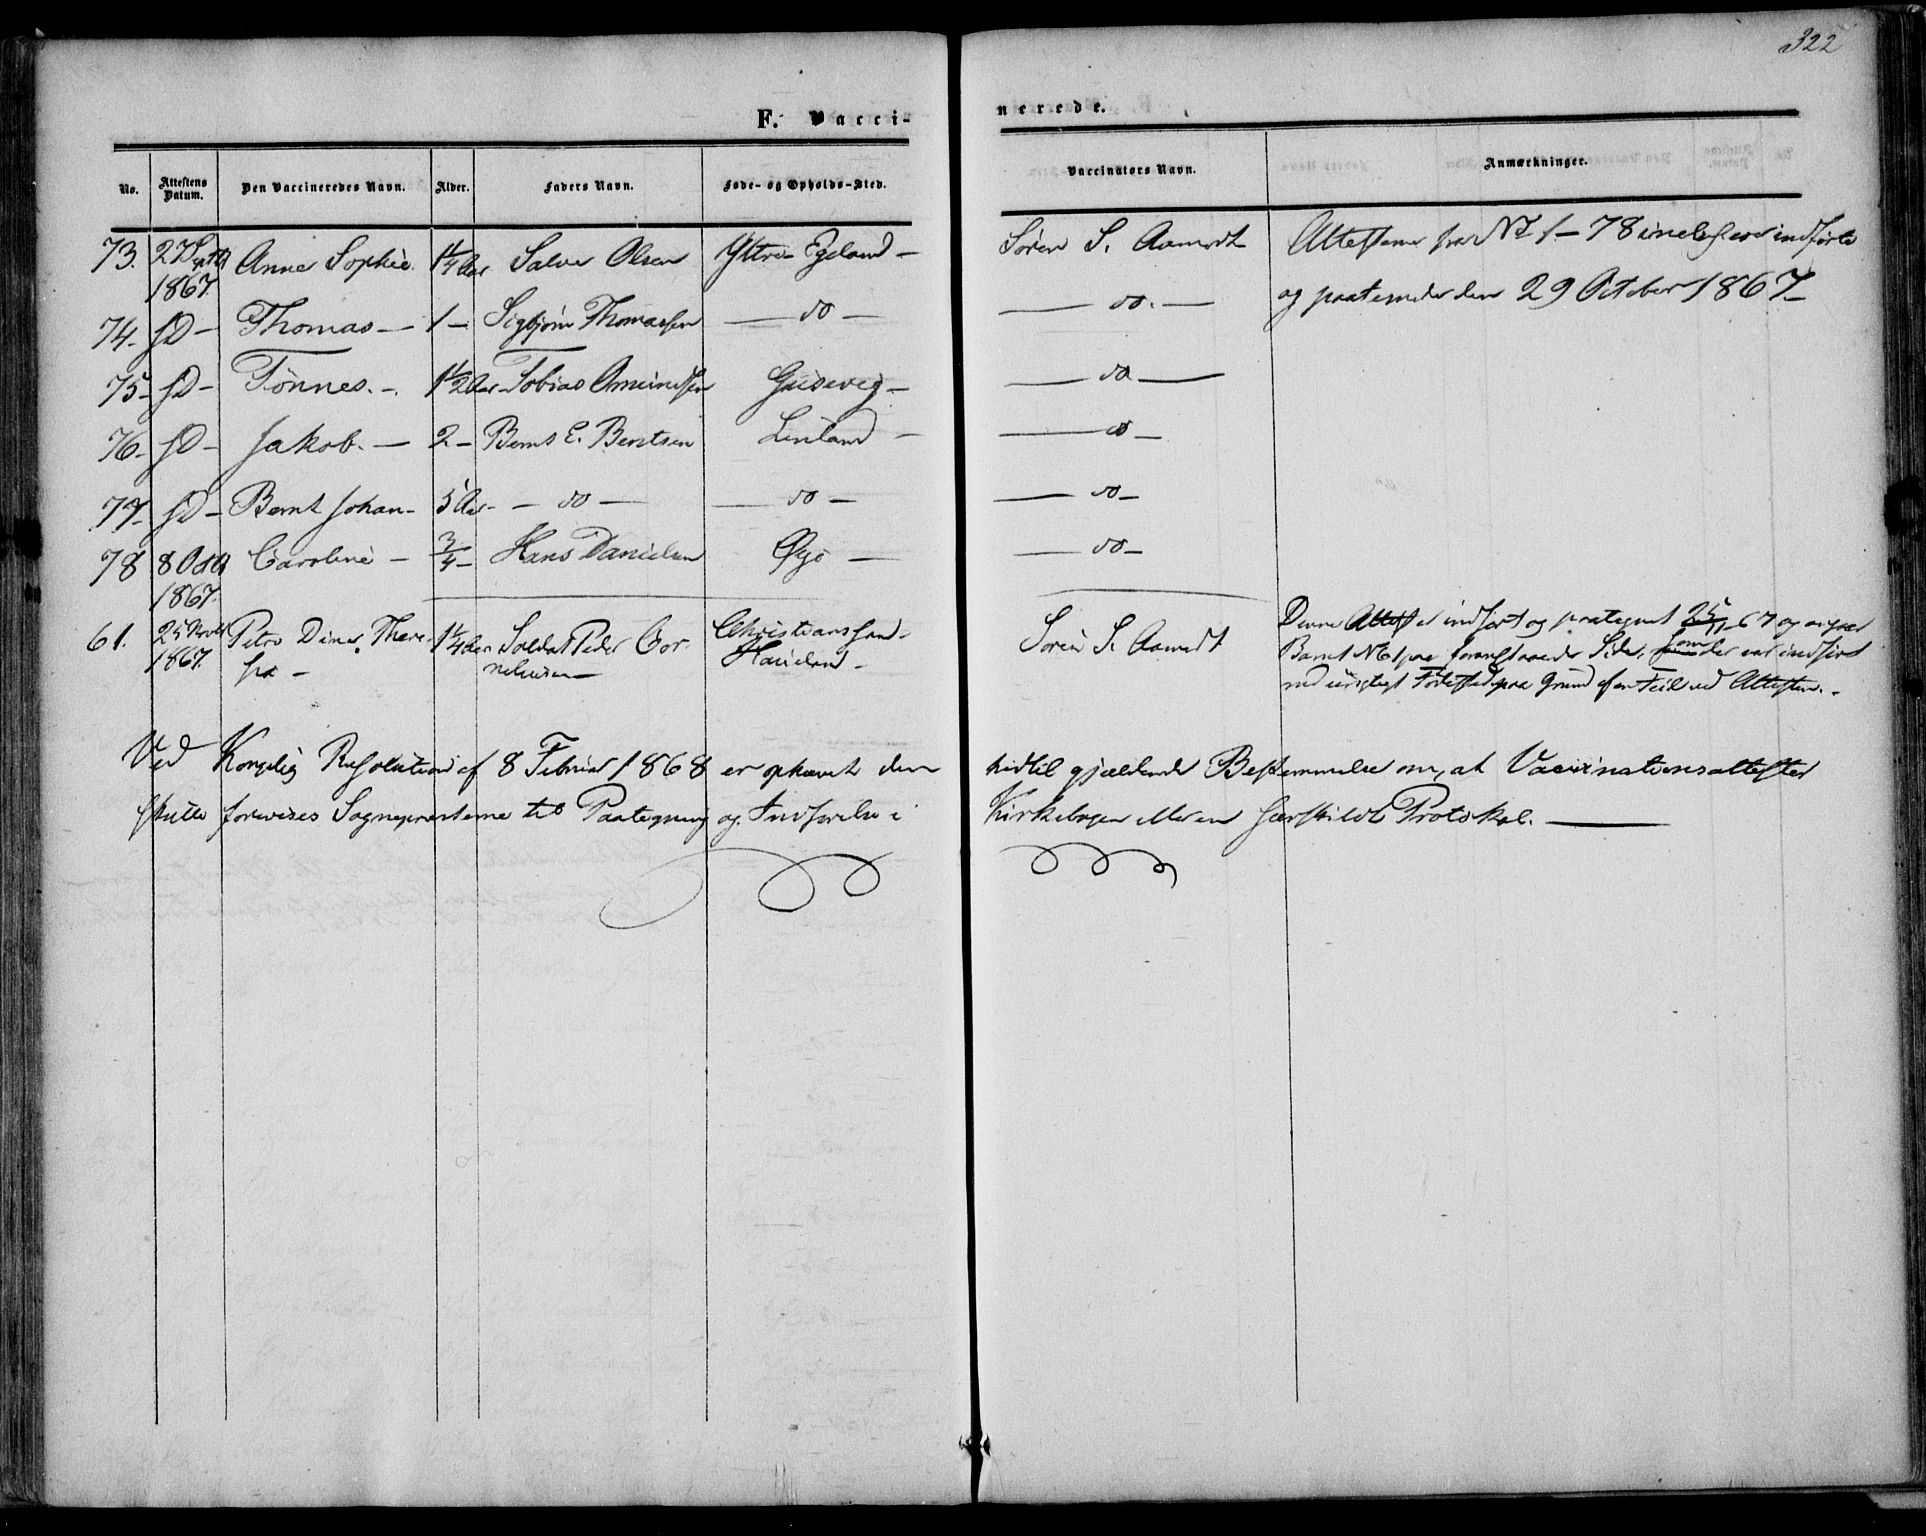 322
F. Vacci-
nerede.
No.
Attestens Datum.
Den Vaccineredes Navn.
Alder.
Faders Navn.
Føde- og Opholds-Sted.
Vaccinators Navn.
Anmærkninger.
73. 27 Septb 1867. Anne Sophie. 1 1/4 Aar Salve Olsen Yttre Egeland - Søren S. Aamodt
Attesterne fra No 1 - 78 incl. ere indførte
og paategnede den 29 October 1867 -
74 - do - Thomas - 1 - Sigbjørn Thomassen - do - - do. -
75 - do - Tønnes. - 1 1/2 Aar Tobias Omundsen - - do -
76 - do - Jakob. - 2 - Bernt E. Berntsen Linland - - do -
77 - do - Bernt Johan - 5 Aar - - do - - do - - do -
78 8 Octb 1867. Caroline - 3/4 - Hans Danielsen Øyö - - do -
61. 25 Novbr 1867. Petro Dine There-
sa -
1 1/4 Aar Soldat Peder Cor-
neliusen -
Christianssand -
Haueland -
Søren S. Aamodt
Denne Attest er indført og paategnet 25/11 67 og angaar
Barnet No 61 paa foranstaaende Side, som der var indført
med urigtigt Fødested paa Grund af en Feil ved Attesten. -
Ved Kongelig Resolution af 8 Februar 1868 er ophævet den hidtil gjældende Bestemmelse om, at Vaccinationsattester
skulle forevises Sognepræsterne til Paategning og Indførelse i Kirkebogen eller en særskildt Protokol.